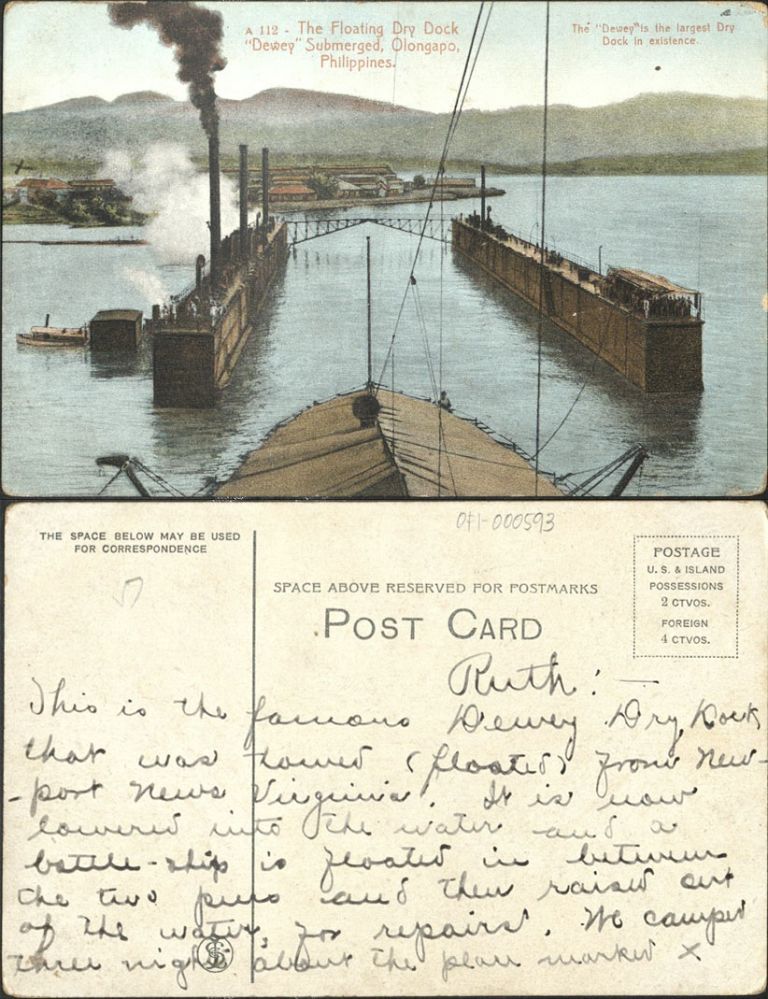 A 112 - The Floating Dry Dock
"Dewey" Submerged, Olongapo,
Philippines.
The "Dewey" is the largest Dry
Dock in existence.
x
THE SPACE BELOW MAY BE USED
FOR CORRESPONDENCE
OF1-000593
SPACE ABOVE RESERVED FOR POSTMARKS
POST CARD
POSTAGE
U. S. & ISLAND
POSSESSIONS
2 CTVOS.
FOREIGN
4 CTVOS.
Ruth: -
This is the famous Dewey Dry Dock
that was towed (floated) from New-
-port News Virginia. It is now
lowered into the water and a
battle-ship is floated in between
the two piers and then raised out
of the water, for repairs. We camped
three nights about the place marked x